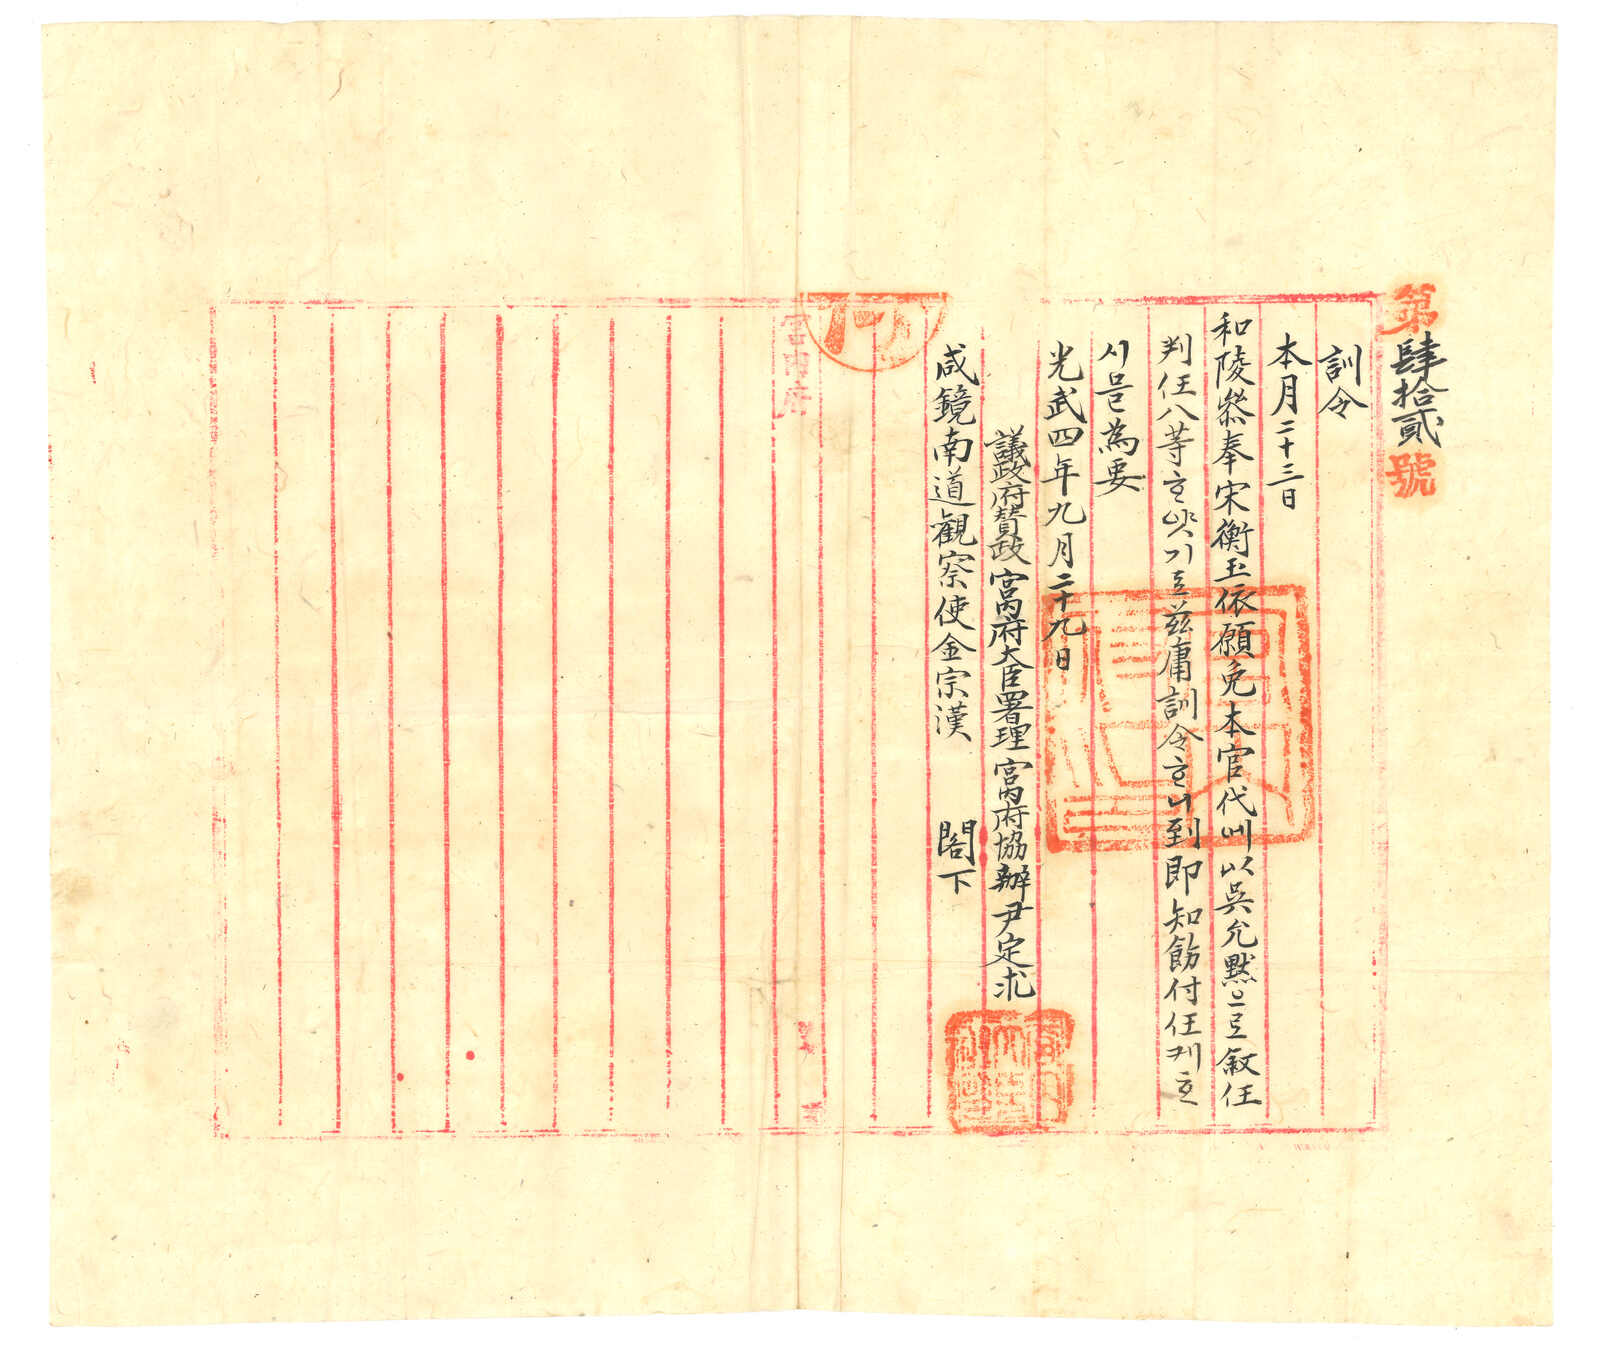 第肆拾貳號
訓令
本月二十三日
和陵叅奉宋衡玉依願免本官代에以吳允默으로敍任
判任八等ᄒᆞ얏기로玆庸訓令ᄒᆞ니到卽知飭付任케ᄒᆞ
시믈爲要
光武四年九月二十九日
議政府贊政宮內府大臣署理宮內府協辦尹定求
咸鏡南道觀察使金宗漢 閣下
宮內府